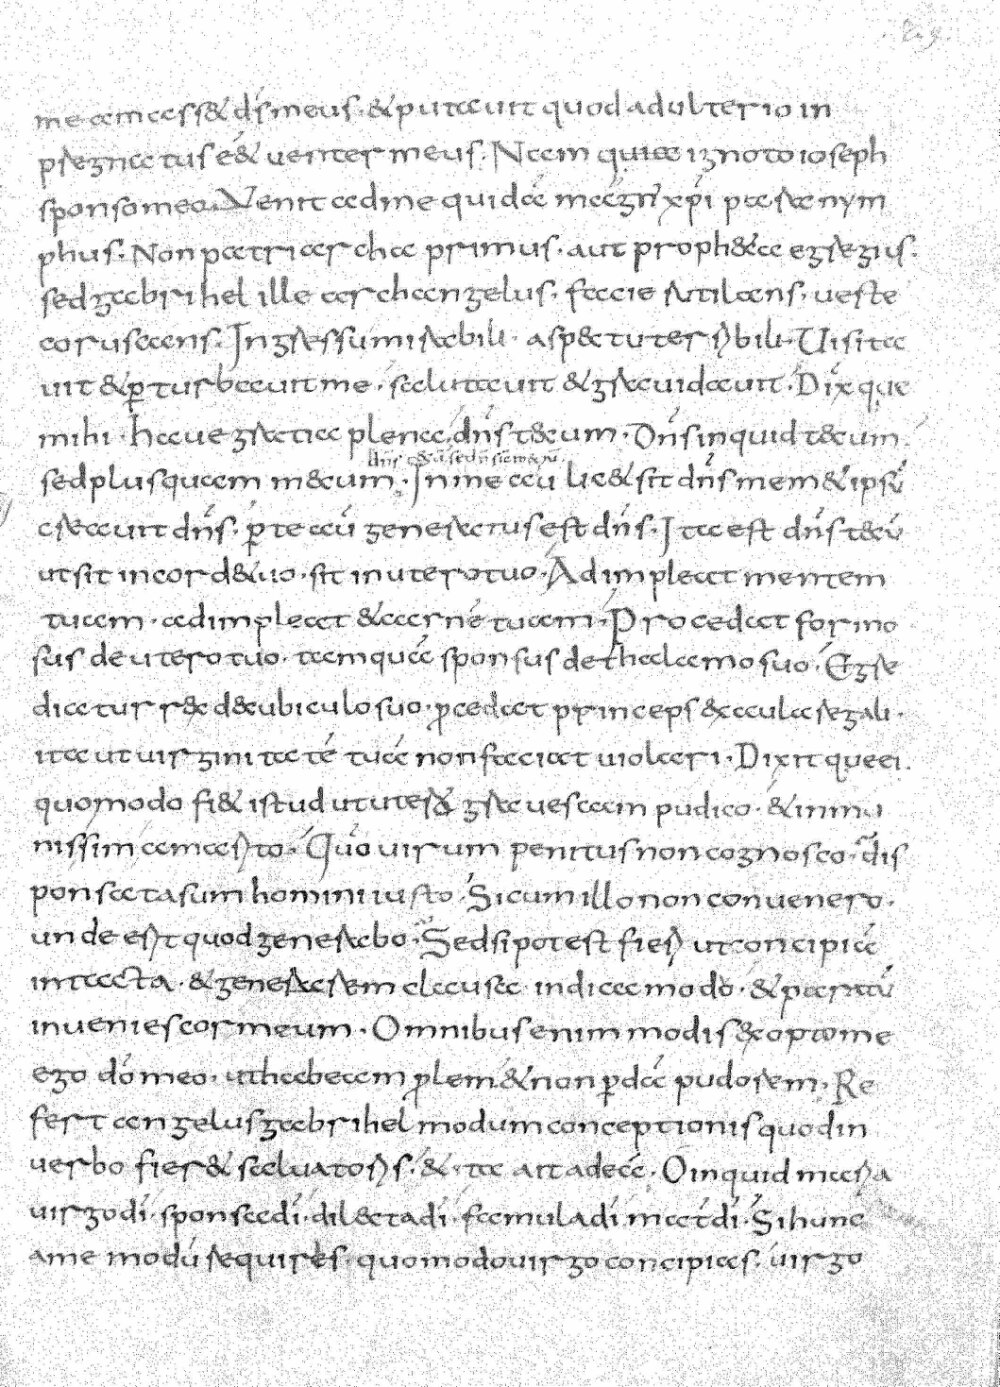 me amass& ds meus · & putauit quod adulterio in
pregnatus é& uenter meus · Nam quia ignoto ioseph
sponso meo · Venit ad me quidā māgn xpi paranym
phus · Non patriarcha primus · aut proph&a egregius ·
sed gabrihel ille archangelus · facie rutilans · ueste
coruscans · Ingressu mirabili · aspectu terribili · Uisita
uit & pturbauit me · salutauit & grauidauit · Dixque
mihi · haue gratia plena dns tecum · Dns inquid tecum
sed plusquam mecum · In me cū lic& sit dns mem & ipsū
creauit dns · p te aū generarus est dns · Ita est dns tecū
ut sit in corde tuo · sit in utero tuo · Adimpleat mentem
tuam · adimpleat & carnē tuam · Procedat formo
sus de utero tuo · tamquā sponsus de thalamo suo · Egre
diatur rex de cubiculo suo · pcedat princeps ex aula regali ·
ita ut uirginitatē tuā non faciat uiolari · Dixit que ei
quomodo fi& istud ut uter& grauescam pudico · & inmu
nissim amarito · Quo uirum penitus non cognosco · dis
ponsata sum homini iusto · Si cum illo non conuenero ·
unde erit quod generabo · Sed si potest fieri ut concipiā
intacta · & generarem clausa · indica modo · & paratū
inuenies cor meum · Omnibus enim modis & opto me
ego dō meo · ut habeam plem & non pdā pudorem · Re
fert angelus gabrihel modum conceptionis quod in
uerbo fier& saluatoris · & ita ait ad eā · O inquid maria
uirgo di · sponsa di · dilecta di · famula di mat di · Si hunc
a me modū requires · quomodo uirgo concipias · uirgo